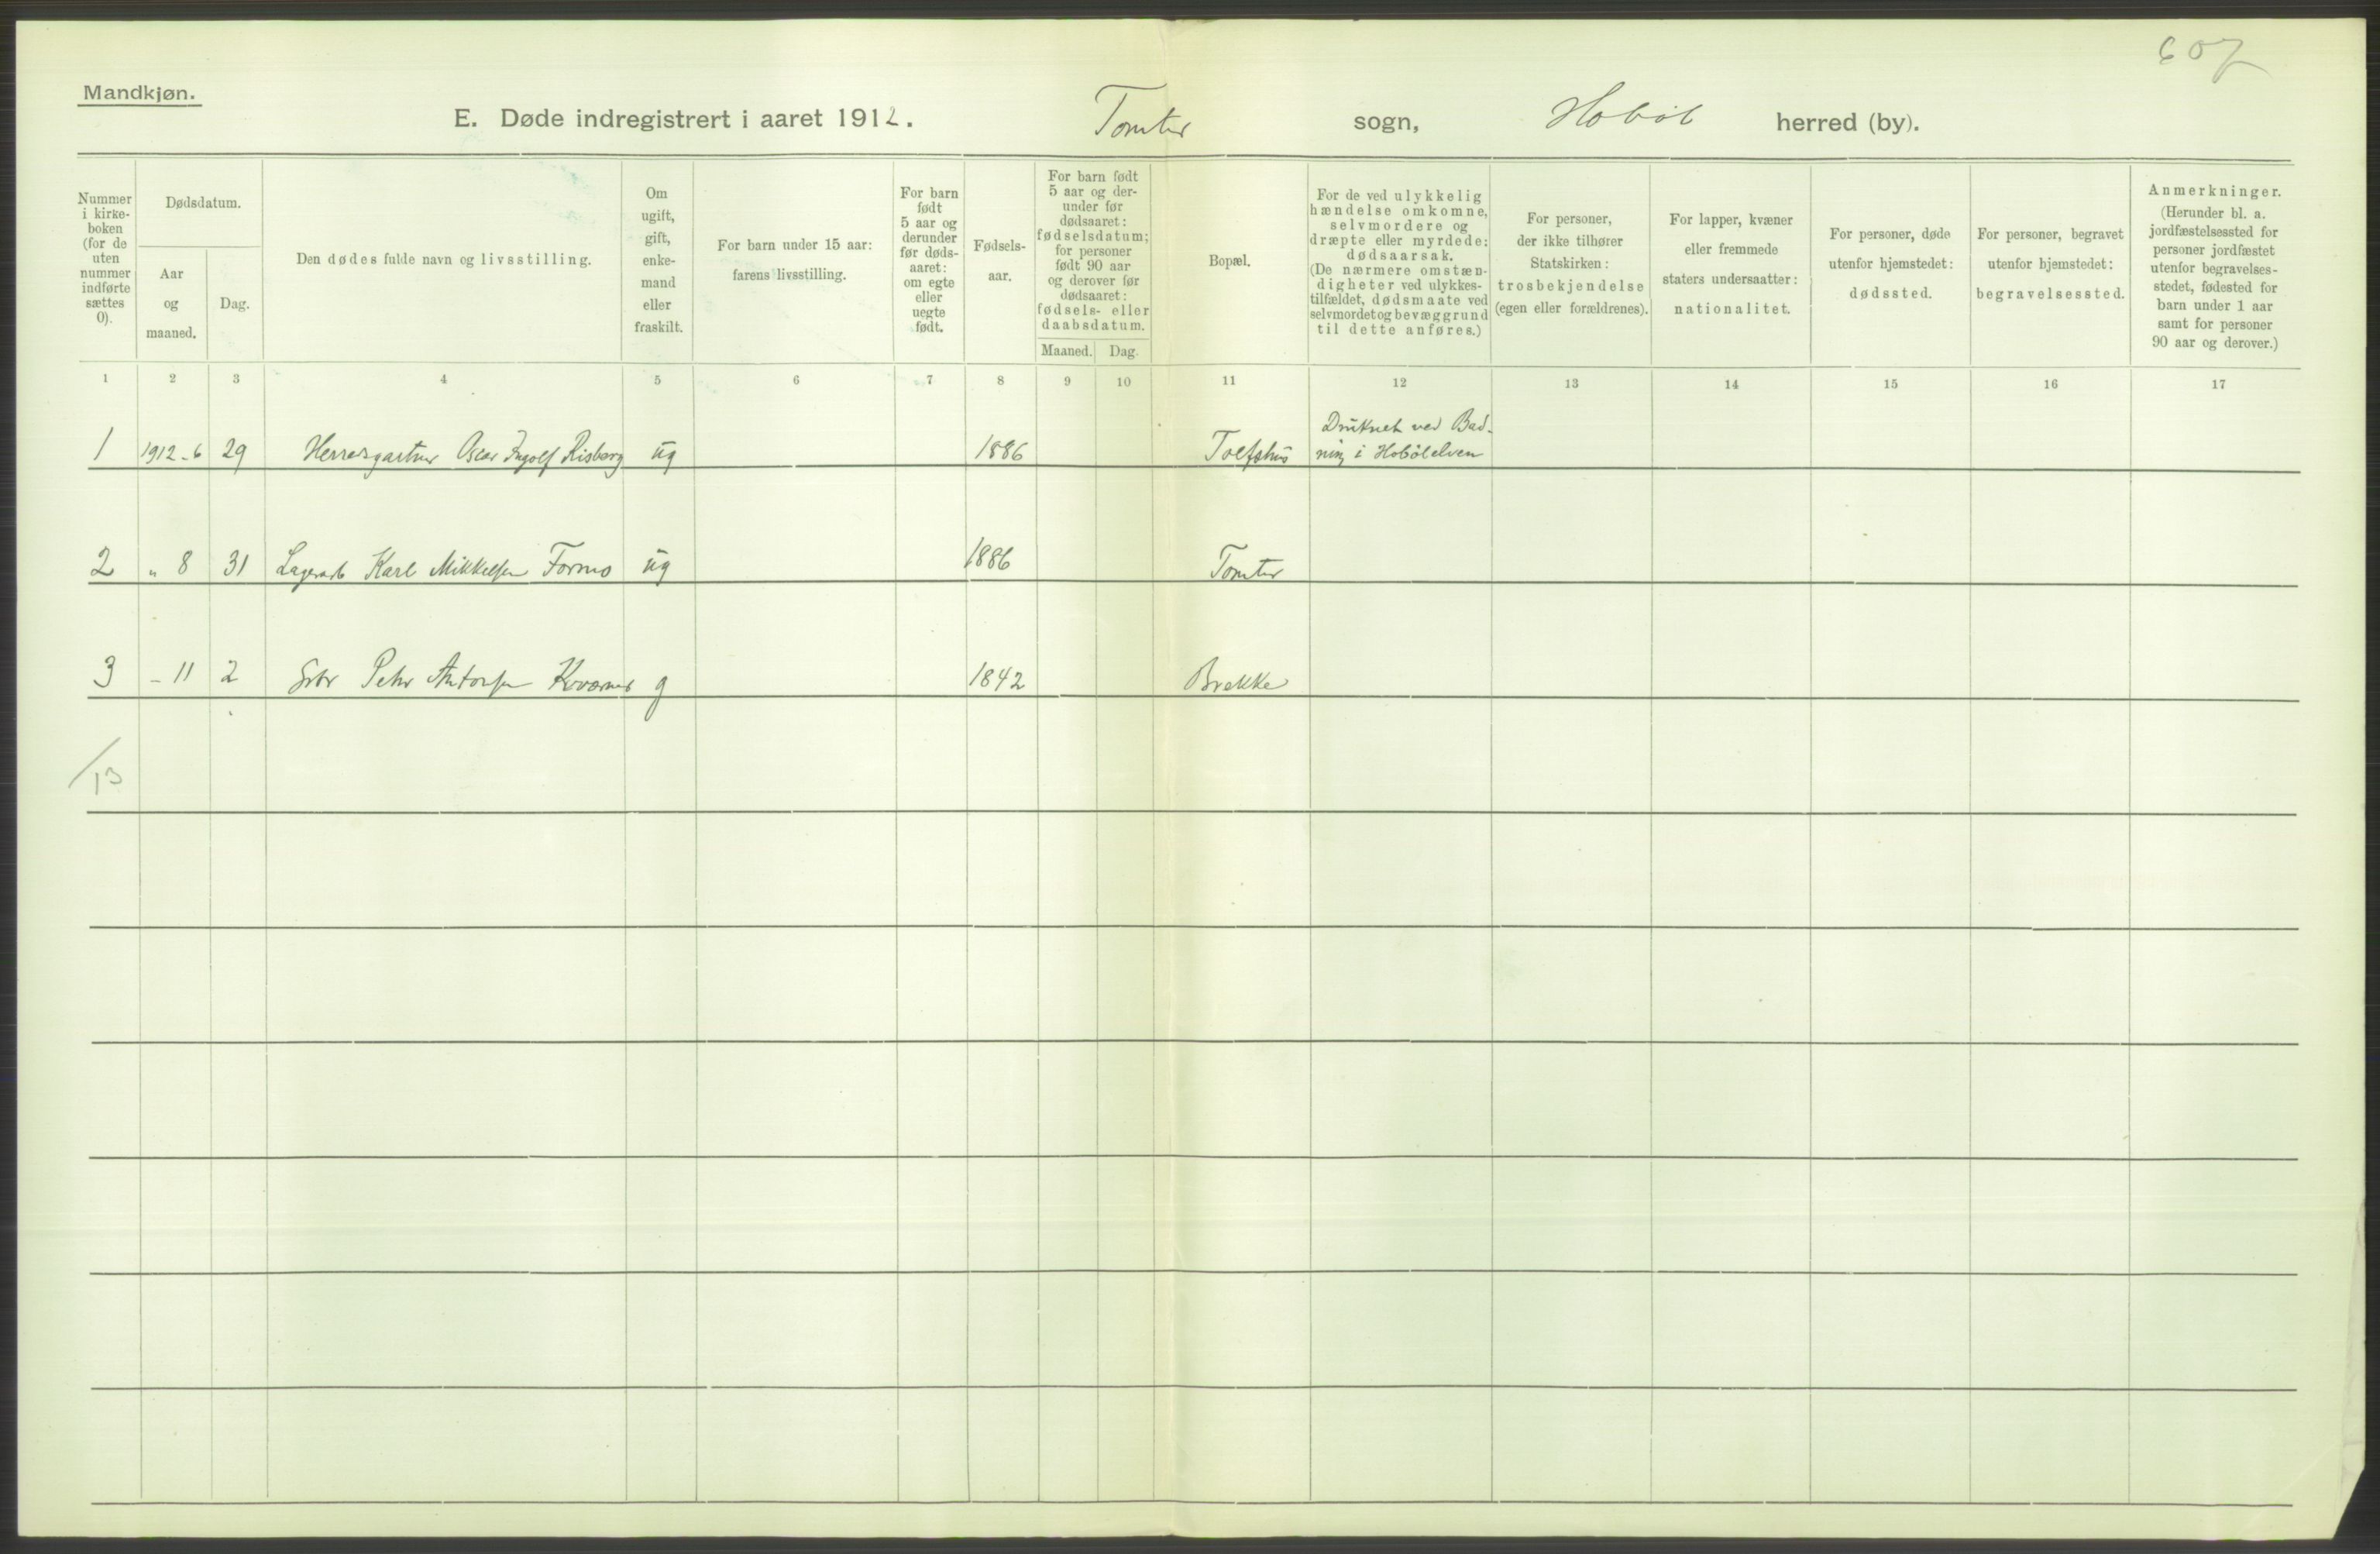 607
Mandkjøn.
E. Døde indregistrert i aaret 1912. Tomter sogn, Hobøl herred (by).
Nummer
i kirke-
boken
(for de
uten
nummer
indførte
sættes
0).
Dødsdatum.
Aar
og
maaned.
Dag.
Den dødes fulde navn og livsstilling.
Om
ugift,
gift,
enke-
mand
eller
fraskilt.
For barn under 15 aar:
farens livsstilling.
For barn
født
5 aar og
derunder
før døds-
aaret:
om egte
eller
uegte
født.
Fødsels-
aar.
For barn født
5 aar og der-
under før
dødsaaret:
fødselsdatum;
for personer
født 90 aar
og derover før
dødsaaret:
fødsels- eller
daabsdatum.
Maaned. Dag.
Bopæl.
For de ved ulykkelig
hændelse omkomne,
selvmordere og
dræpte eller myrdede:
dødsaarsak.
(De nærmere omstæn-
digheter ved ulykkes-
tilfældet, dødsmaate ved
selvmordet og bevæggrund
til dette anføres.)
For personer,
der ikke tilhører
Statskirken:
trosbekjendelse
(egen eller forældrenes).
For lapper, kvæner
eller fremmede
staters undersaatter:
nationalitet.
For personer, døde
utenfor hjemstedet:
dødssted.
For personer, begravet
utenfor hjemstedet:
begravelsessted.
Anmerkninger.
(Herunder bl. a.
jordfæstelsessted for
personer jordfæstet
utenfor begravelses-
stedet, fødested for
barn under 1 aar
samt for personer
90 aar og derover.)
1 2 3 4 5 6 7 8 9 10 11 12 13 14 15 16 17
Druknet ved Bad-
1 1912-6 29 Herredsgartner Oscar Ingolf Risberg ug 1886 ning i Hobölelven
2 " 8 31 Lagerarb Karl Mikkelsen Formo ug 1886 Tomter
3 - 11 2 Petter Antonsen g 1842 Brekke
/13